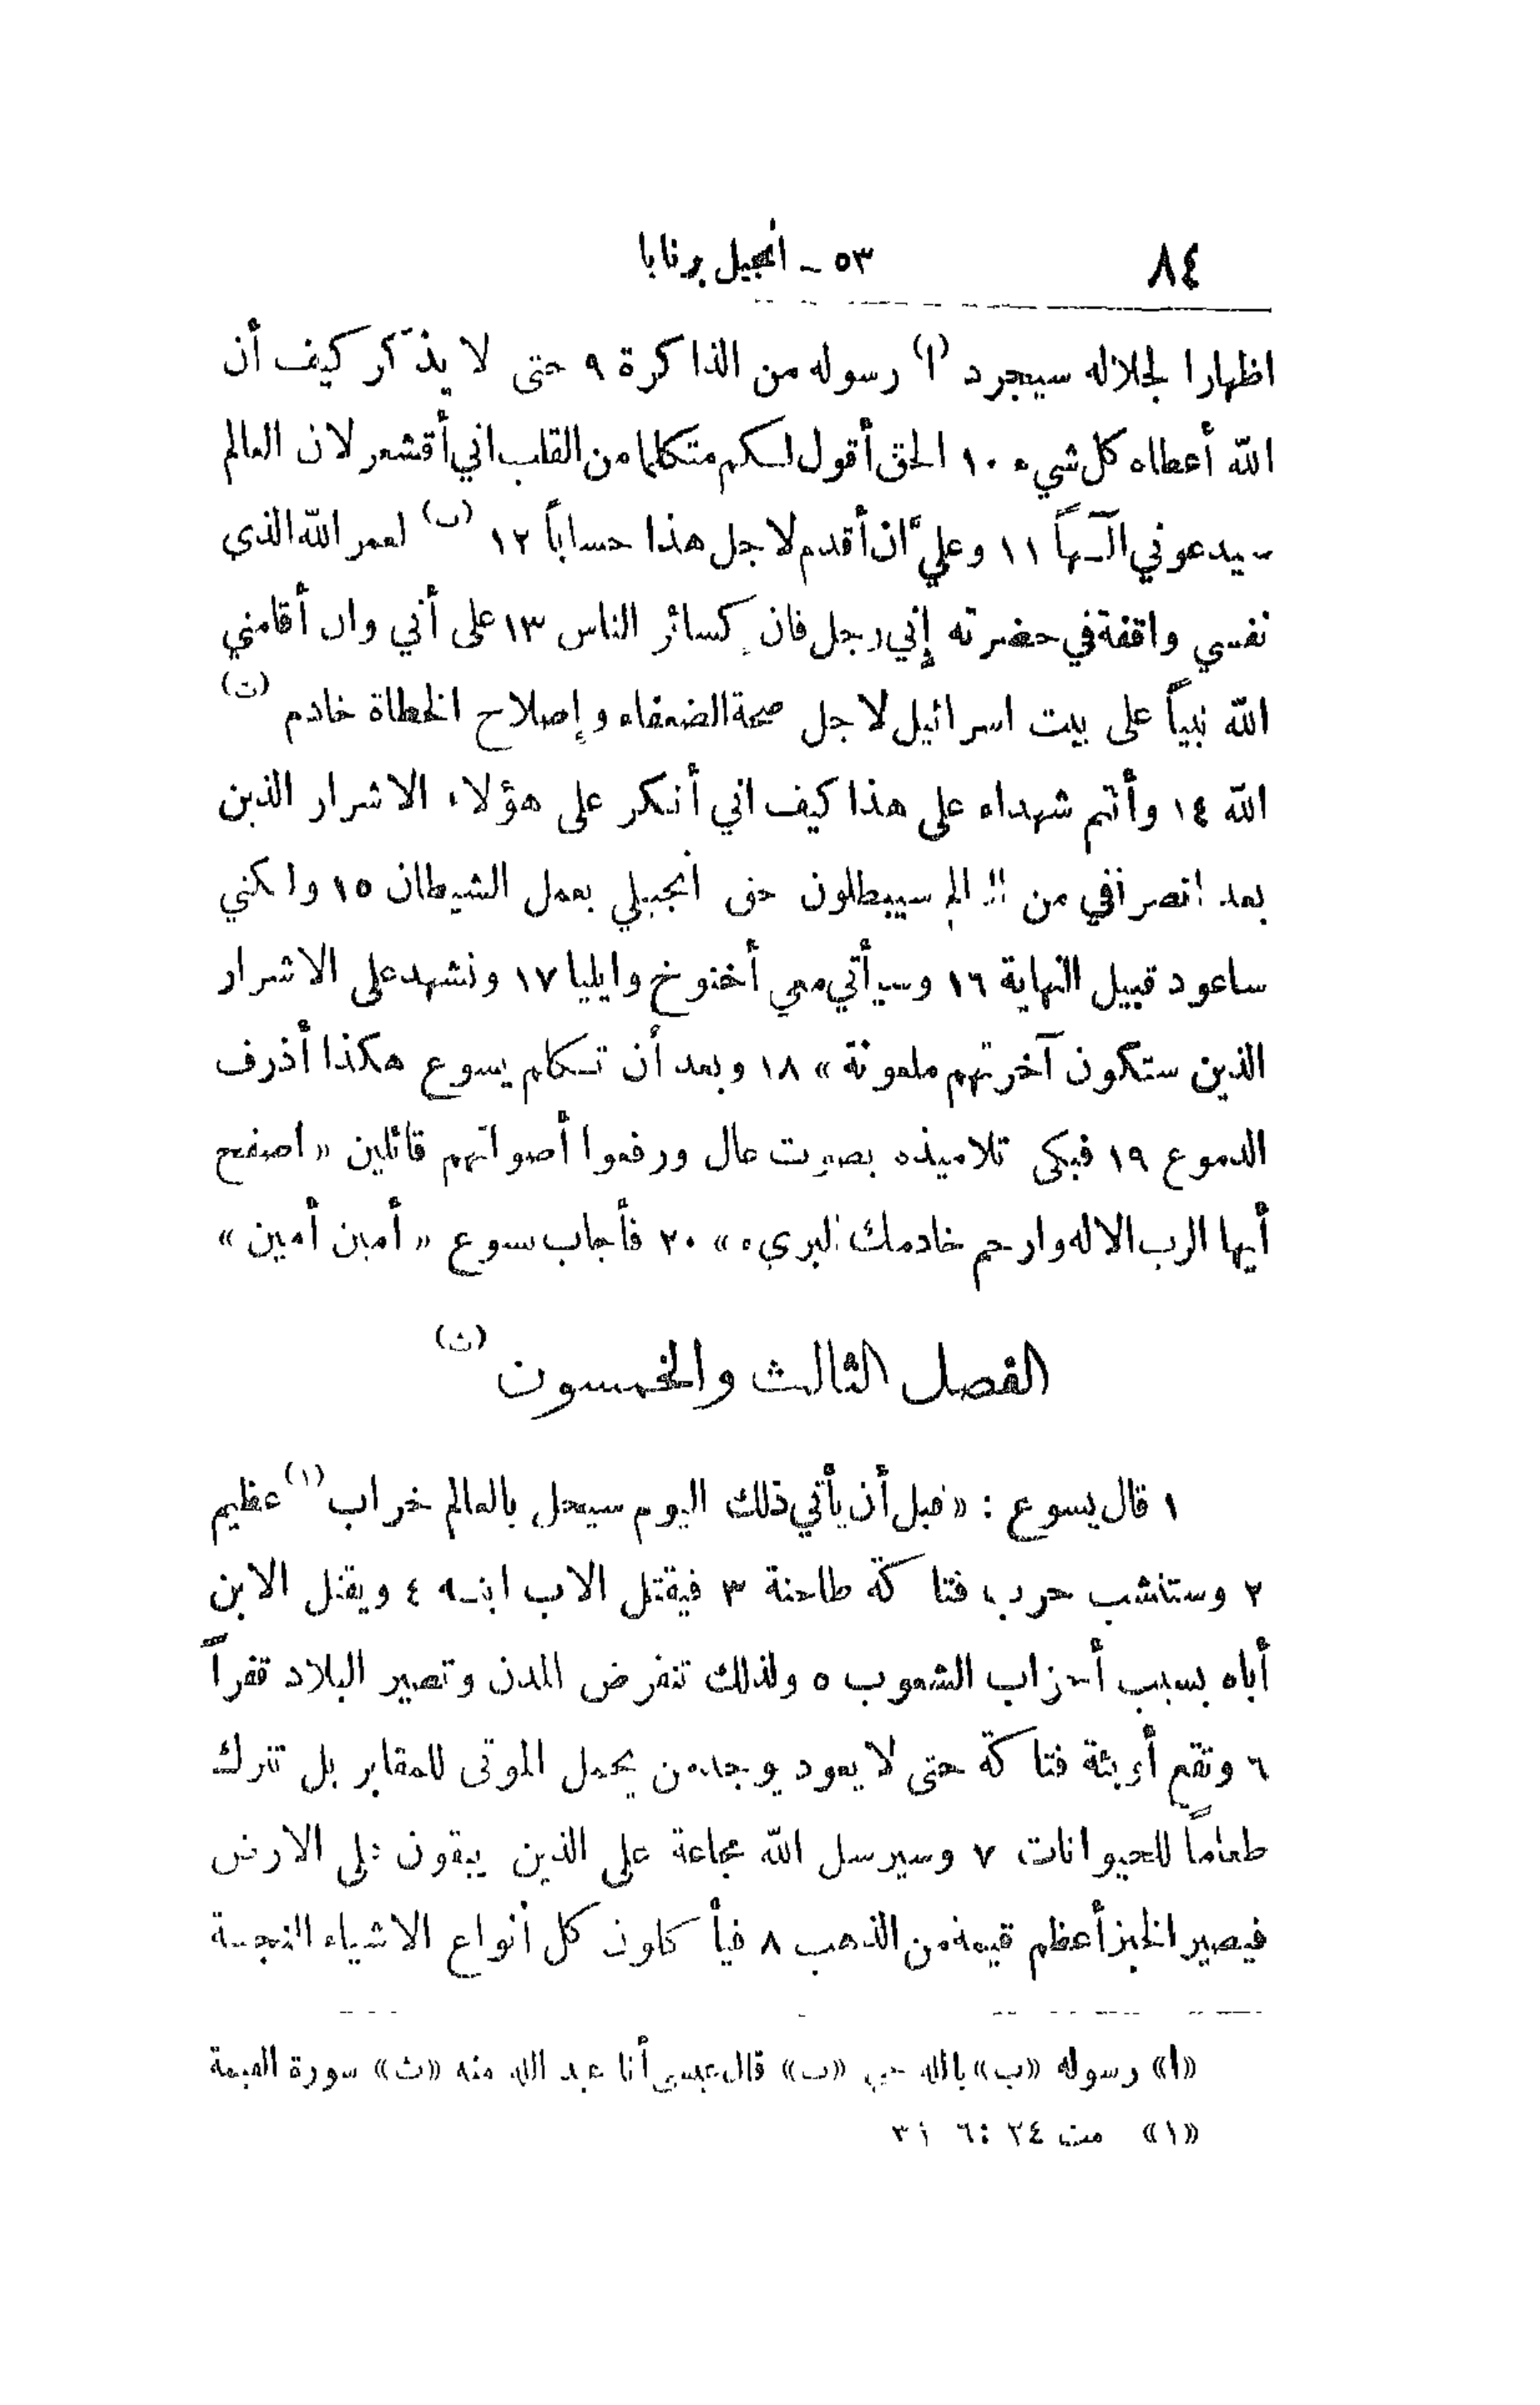 ٨٤ ٥٣ ـ انجيل برنابا
اظهارا لجلاله سيجرد (ا) رسوله من الذاكرة ٩ حتى لا يذكر كيف أن
الله أعطاه كل شيء ١٠ الحق أقول لكم متكلما من القلب اني أقشعر لان العالم
سيدعوني الآـهاً ١١ وعليَّ ان أقدم لاجل هذا حساباً ١٢ (ب) لعمر الله الذي
نفسي واقفة في حضرته إني رجل فان كسائر الناس ١٣ على أني وان أقامني
الله نبياً على بيت اسرائيل لاجل صحة الضعفاء وإصلاح الخطاة خادم (ت)
الله ١٤ وأنتم شهداء على هذا كيف اني أنكر على هؤلاء الاشرار الذين
بعد انصرافي من العالم سيبطلون حق انجيلي بعمل الشيطان ١٥ ولكني
ساعود قبيل النهاية ١٦ وسيأتي معي أخنوخ وايليا ١٧ ونشهد على الاشرار
الذين ستكون آخرتهم ملعونة » ١٨ وبعد أن تكلم يسوع هكذا أذرف
الدموع ١٩ فبكى تلاميذه بصوت عال ورفعوا أصواتهم قائلين « اصفح
أيها الرب الاله وارحم خادمك البريء » ٢٠ فأجاب يسوع « أمين أمين »
الفصل الثالث والخمسون (ث)
١ قال يسوع : « قبل أن يأتي ذلك اليوم سيحل بالعالم خراب (١) عظيم
٢ وستنشب حرب فتاكة طاحنة ٣ فيقتل الاب ابنـه ٤ ويقتل الابن
أباه بسبب أحزاب الشعوب ٥ ولذلك تنقرض المدن وتصير البلاد قفراً
٦ وتقع أوبئة فتاكة حتى لا يعود يوجد من يحمل الموتى للمقابر بل تترك
طعاماً للحيوانات ٧ وسيرسل الله مجاعة على الذين يبقون على الارض
فيصير الخبز أعظم قيمة من الذهب ٨ فيأكلون كل أنواع الاشياء النجسة
«ا» رسوله «ب» بالله حي «ت» قال عيسى أنا عبد الله منه «ث» سورة القيمة
«١» مت ٢٤ : ٦